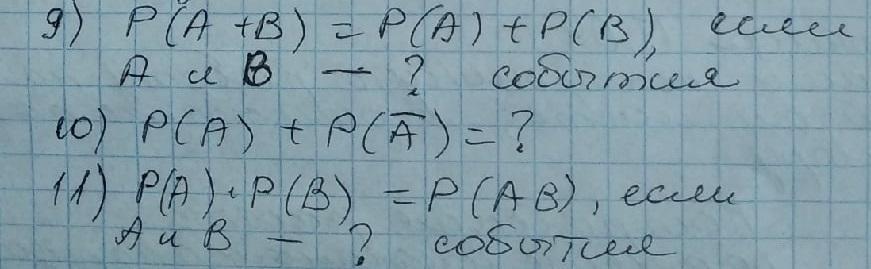 9) P(A + B) = P(A) + P(B), если
A и B — ? события
10) P(A) + P(A̅) = ?
11) P(A) · P(B) = P(AB), если
A и B — ? события